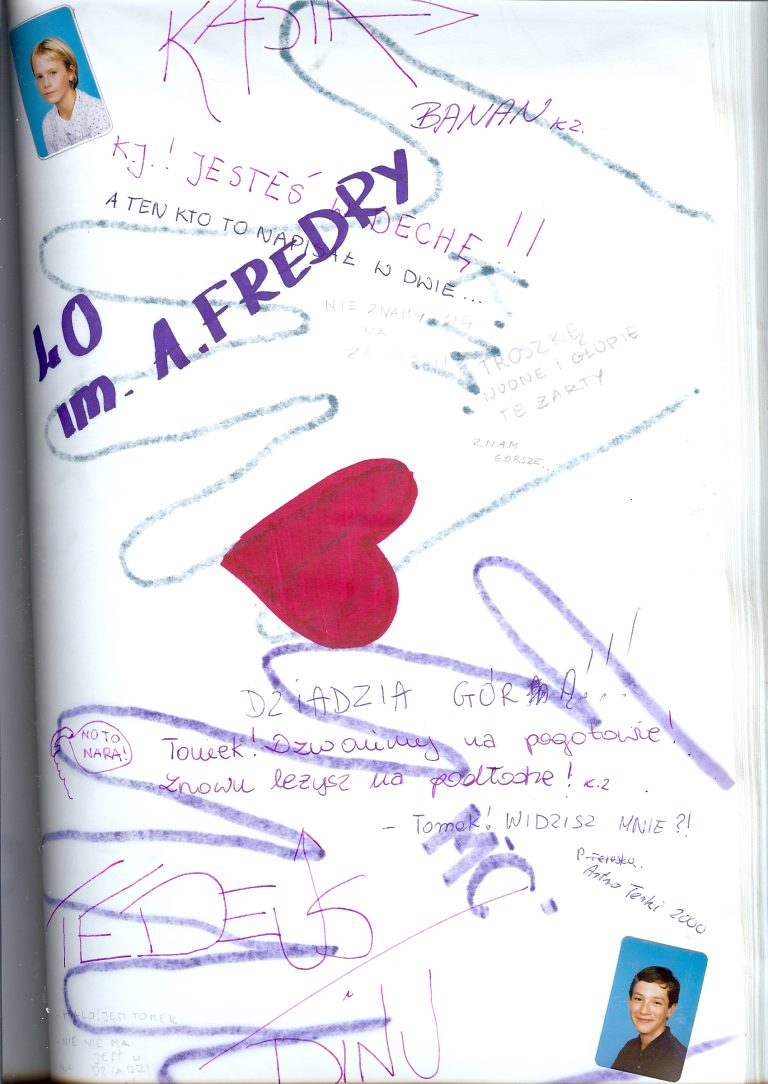 KASIA
BANAN K.Z.
K.J.! JESTEŚ DECHĘ!!
A TEN KTO TO NAPISAŁ W DWIE...
LO
IM. A. FREDRY
NIE ZNAMY SIĘ
NA
TROSZKĘ
NUDNE I GŁUPIE
TE ŻARTY
ZNAM
GORSZE...
DZIADZIA GÓRĄ!!!
NO TO
NARA!
Tomek! Dzwonimy na pogotowie!
Znowu leżysz na podłodze! K.Z.
- Tomek! WIDZISZ MNIE?!
MĆ.
2000
TEDEUS
DINU
- HALO! JEST TOMEK
- NIE NIE MA
JEST U
DZIADZI